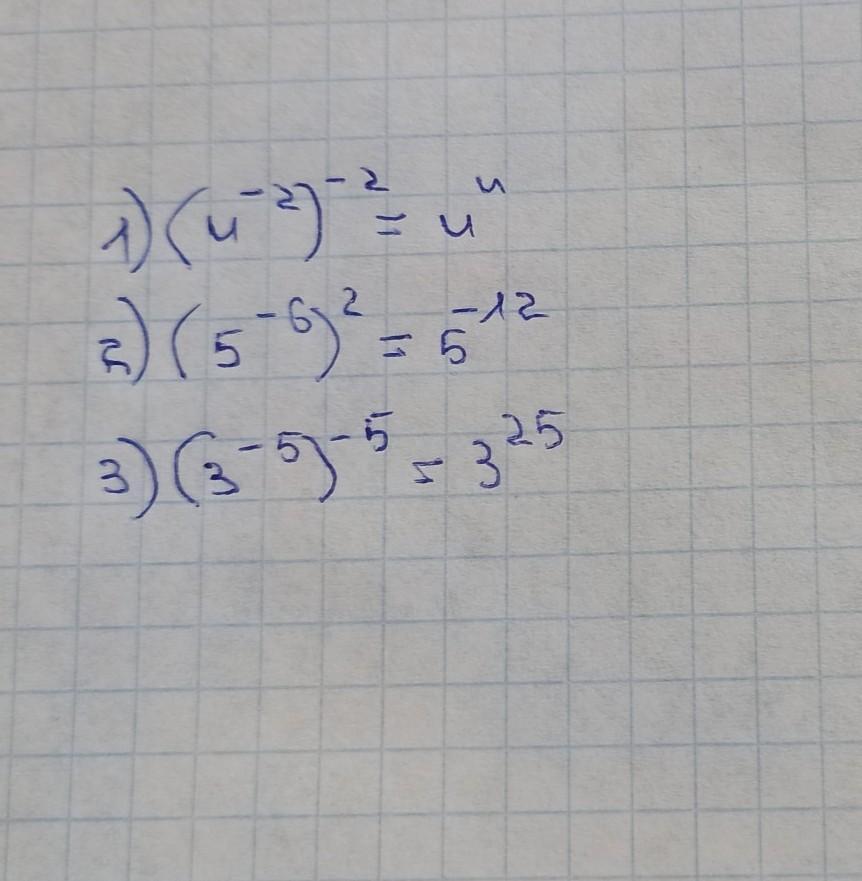 1) (4⁻²)⁻² = 4⁴
2) (5⁻⁶)² = 5⁻¹²
3) (3⁻⁵)⁻⁵ = 3²⁵